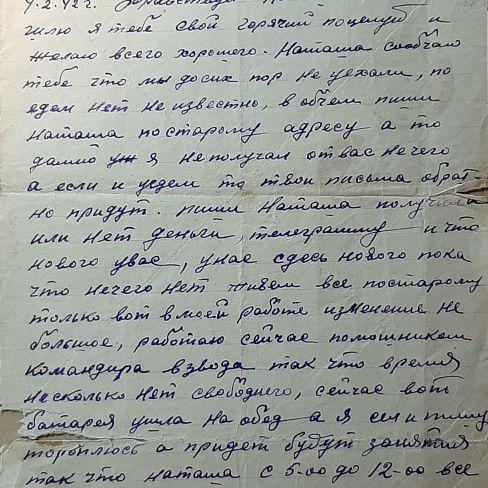 4.2.42 г. Здравствуй
шлю я тебе свой горячий поцелуй и
желаю всего хорошего. Наташа сообчаю
тебе что мы до сих пор не уехали, по
едем нет не известно, в обчем пиши
Наташа по старому адресу а то
давно уж я не получал от вас не чего
а если и уедем то твои письма обрат-
но придут. пиши Наташа получила
или нет деньги, телеграмму и что
нового у вас, у нас сдесь нового пока
что нечего нет живем все постарому
только вот в моей работе изменение не
большое, работаю сейчас помошником
командира взвода так что время
несколько нет свободнего, сейчас вот
батарея ушла на обед а я сел и пишу
тороплюсь а придет будут занятия
так что Наташа с 5-00 до 12-00 все